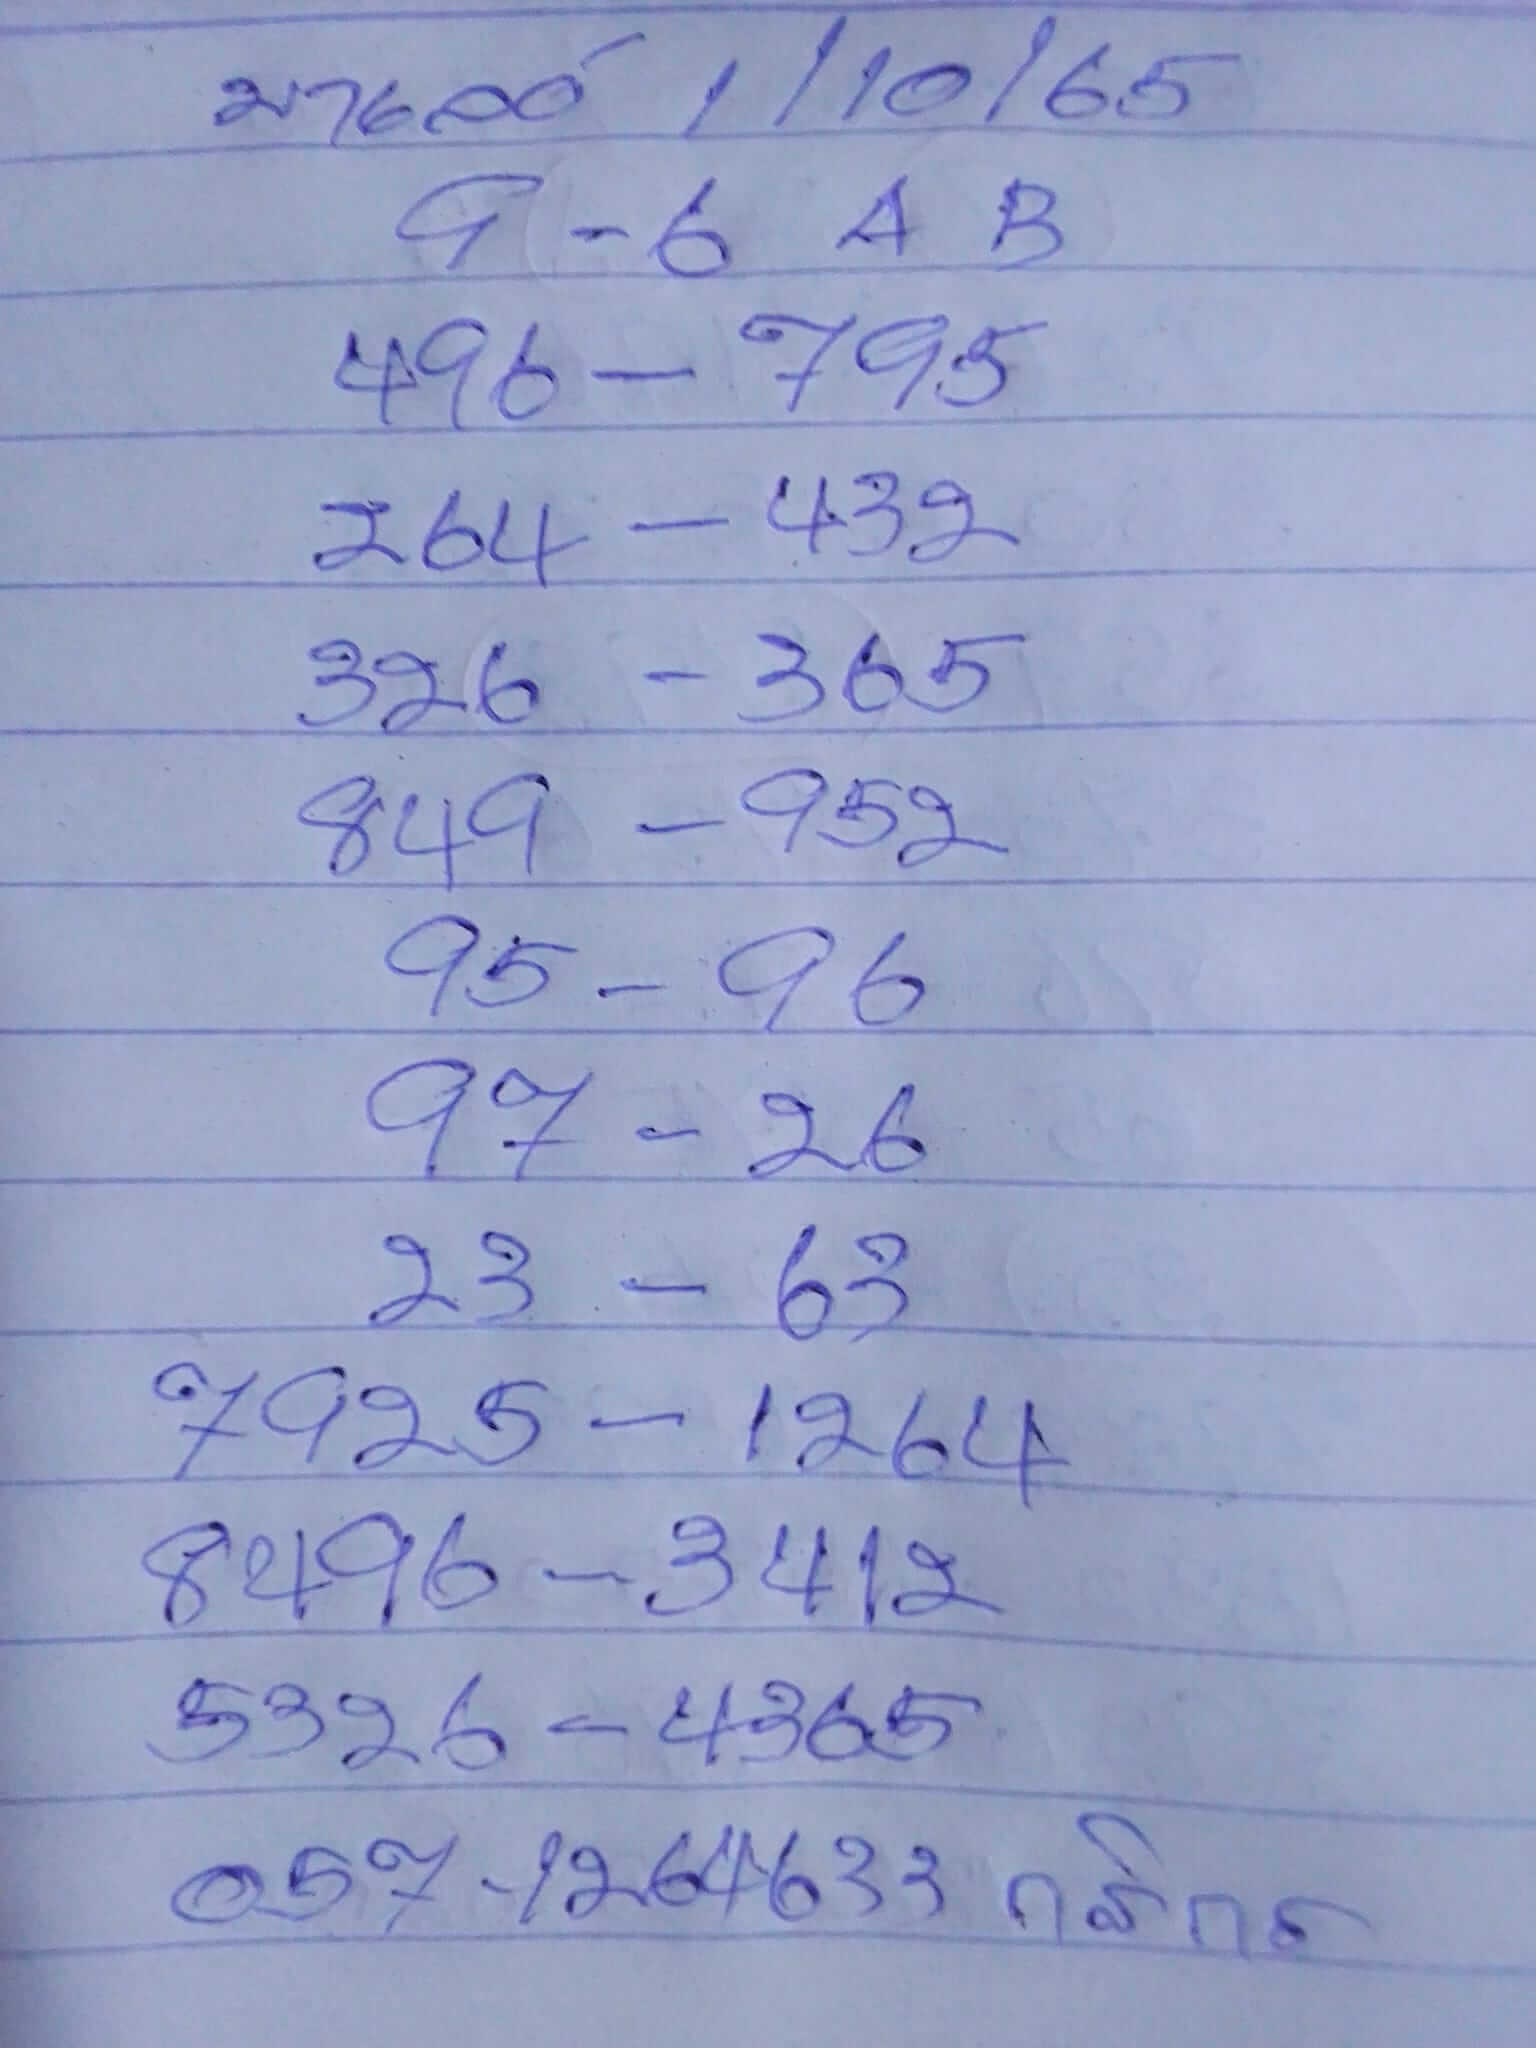 มาเลย์ 1/10/65
9 - 6 A B
496 - 795
264 - 432
326 - 365
849 - 952
95 - 96
97 - 26
23 - 63
7925 - 1264
8496 - 3412
5326 - 4365
057-1264633 กสิกร